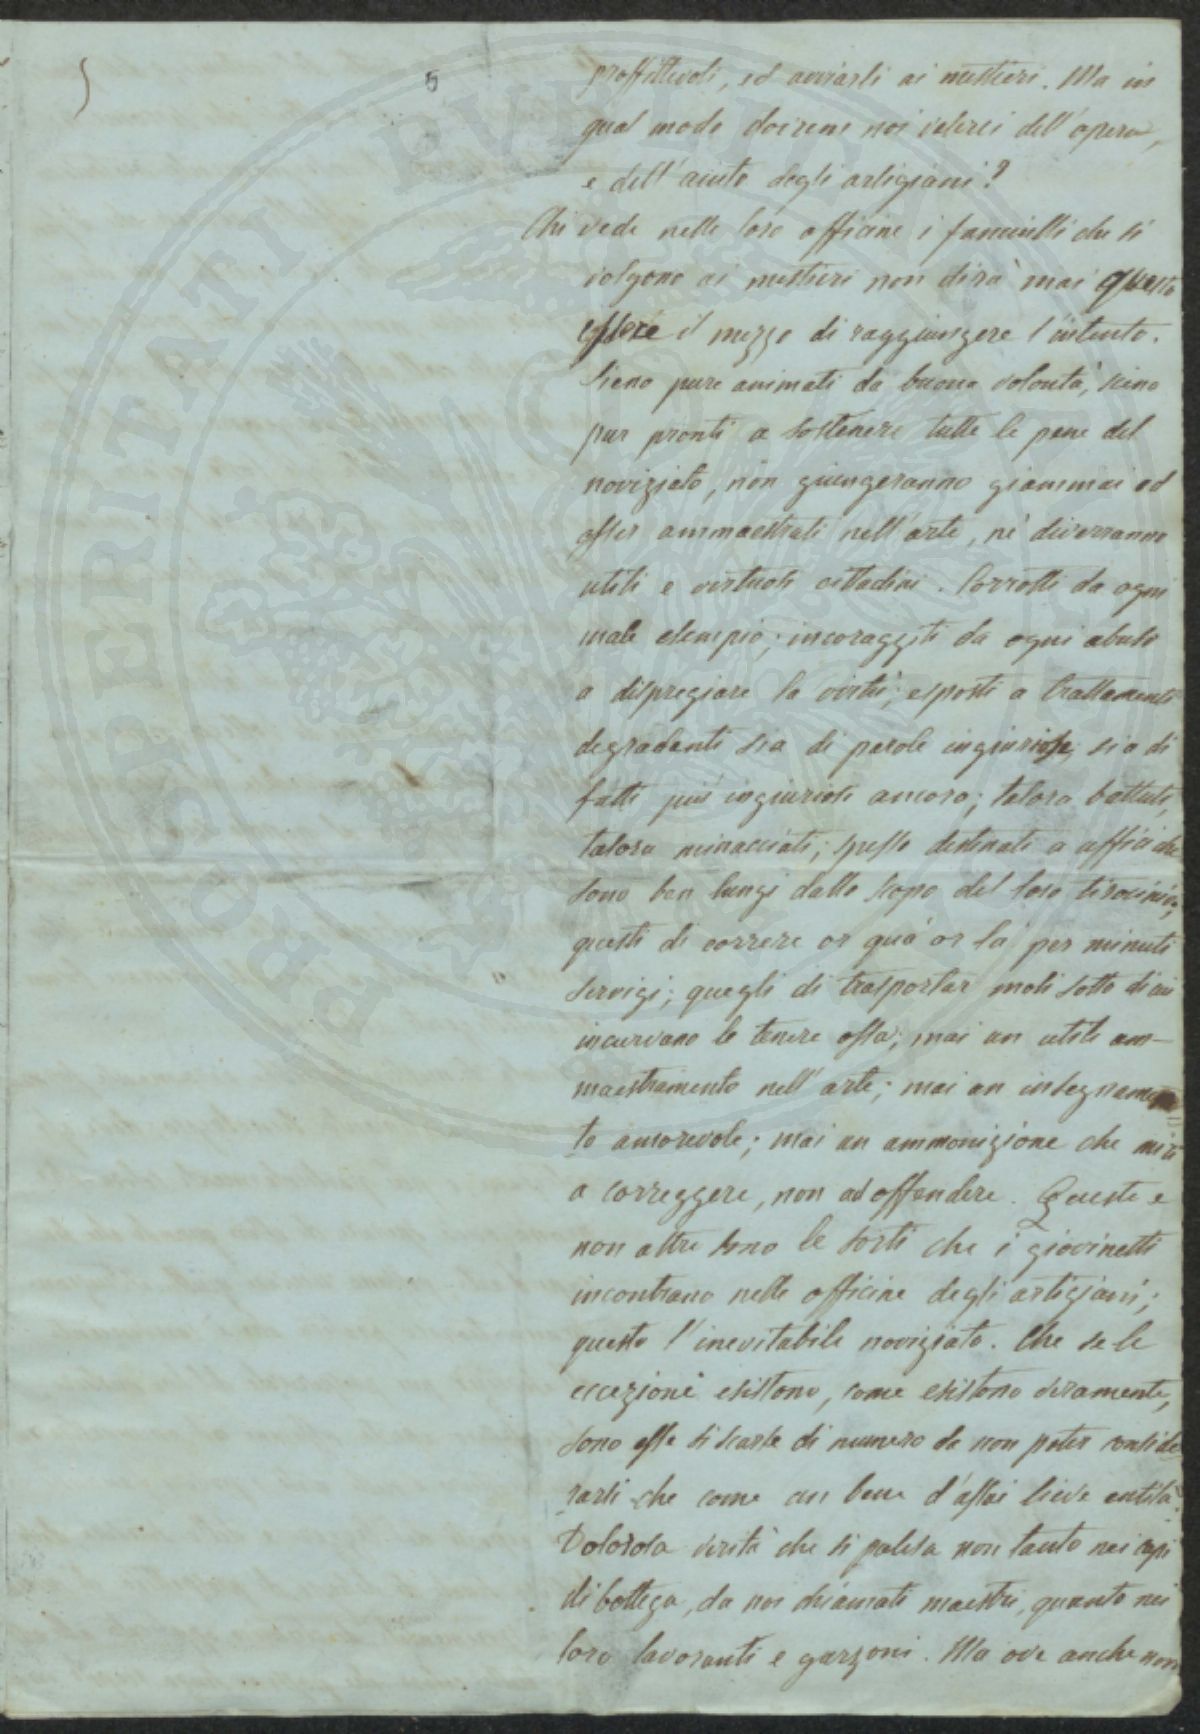 5
proffittevoli, ed avviarli ai mestieri. Ma in
qual modo dovremo noi valerci dell'opera,
e dell'aiuto degli artigiani?
Chi vede nelle loro officine i fanciulli che si
volgono ai mestieri non dirà mai questo
essere il mezzo di raggiungere l'intento.
Sieno pure animati da buona volontà, sieno
pur pronti a sostenere tutte le pene del
noviziato, non giungeranno giammai ad
esser ammaestrati nell'arte, nè diverranno
utili e virtuosi cittadini. Corrotti da ogni
male esempio; incoraggiti da ogni abuso
a dispregiare la virtù; esposti a trattamenti
degradanti sia di parole ingiuriose, sia di
fatti più ingiuriosi ancora; talora battuti,
talora minacciati; spesso destinati a uffici che
sono ben lungi dallo scopo del loro tirocinio;
questi di correre or quà or là per minuti
servigi; quegli di trasportar moli sotto di cui
incurvano le tenere ossa; mai un utile am-
maestramento nell'arte; mai un insegnamen
to amorevole; mai un ammonizione che miri
a correggere, non ad offendere. Queste e
non altre sono le sorti che i giovinetti
incontrano nelle officine degli artigiani;
questo l'inevitabile noviziato. Che se le
eccezioni esistono, come esistono veramente,
sono esse sì scarse di numero da non poter conside
rarli che come un bene d'assai lieve entità.
Dolorosa verità che si palesa non tanto nei capi
di bottega, da noi chiamati maestri, quanto nei
loro lavoranti e garzoni. Ma ove anche non
PROSPERITATI PUBLICAE